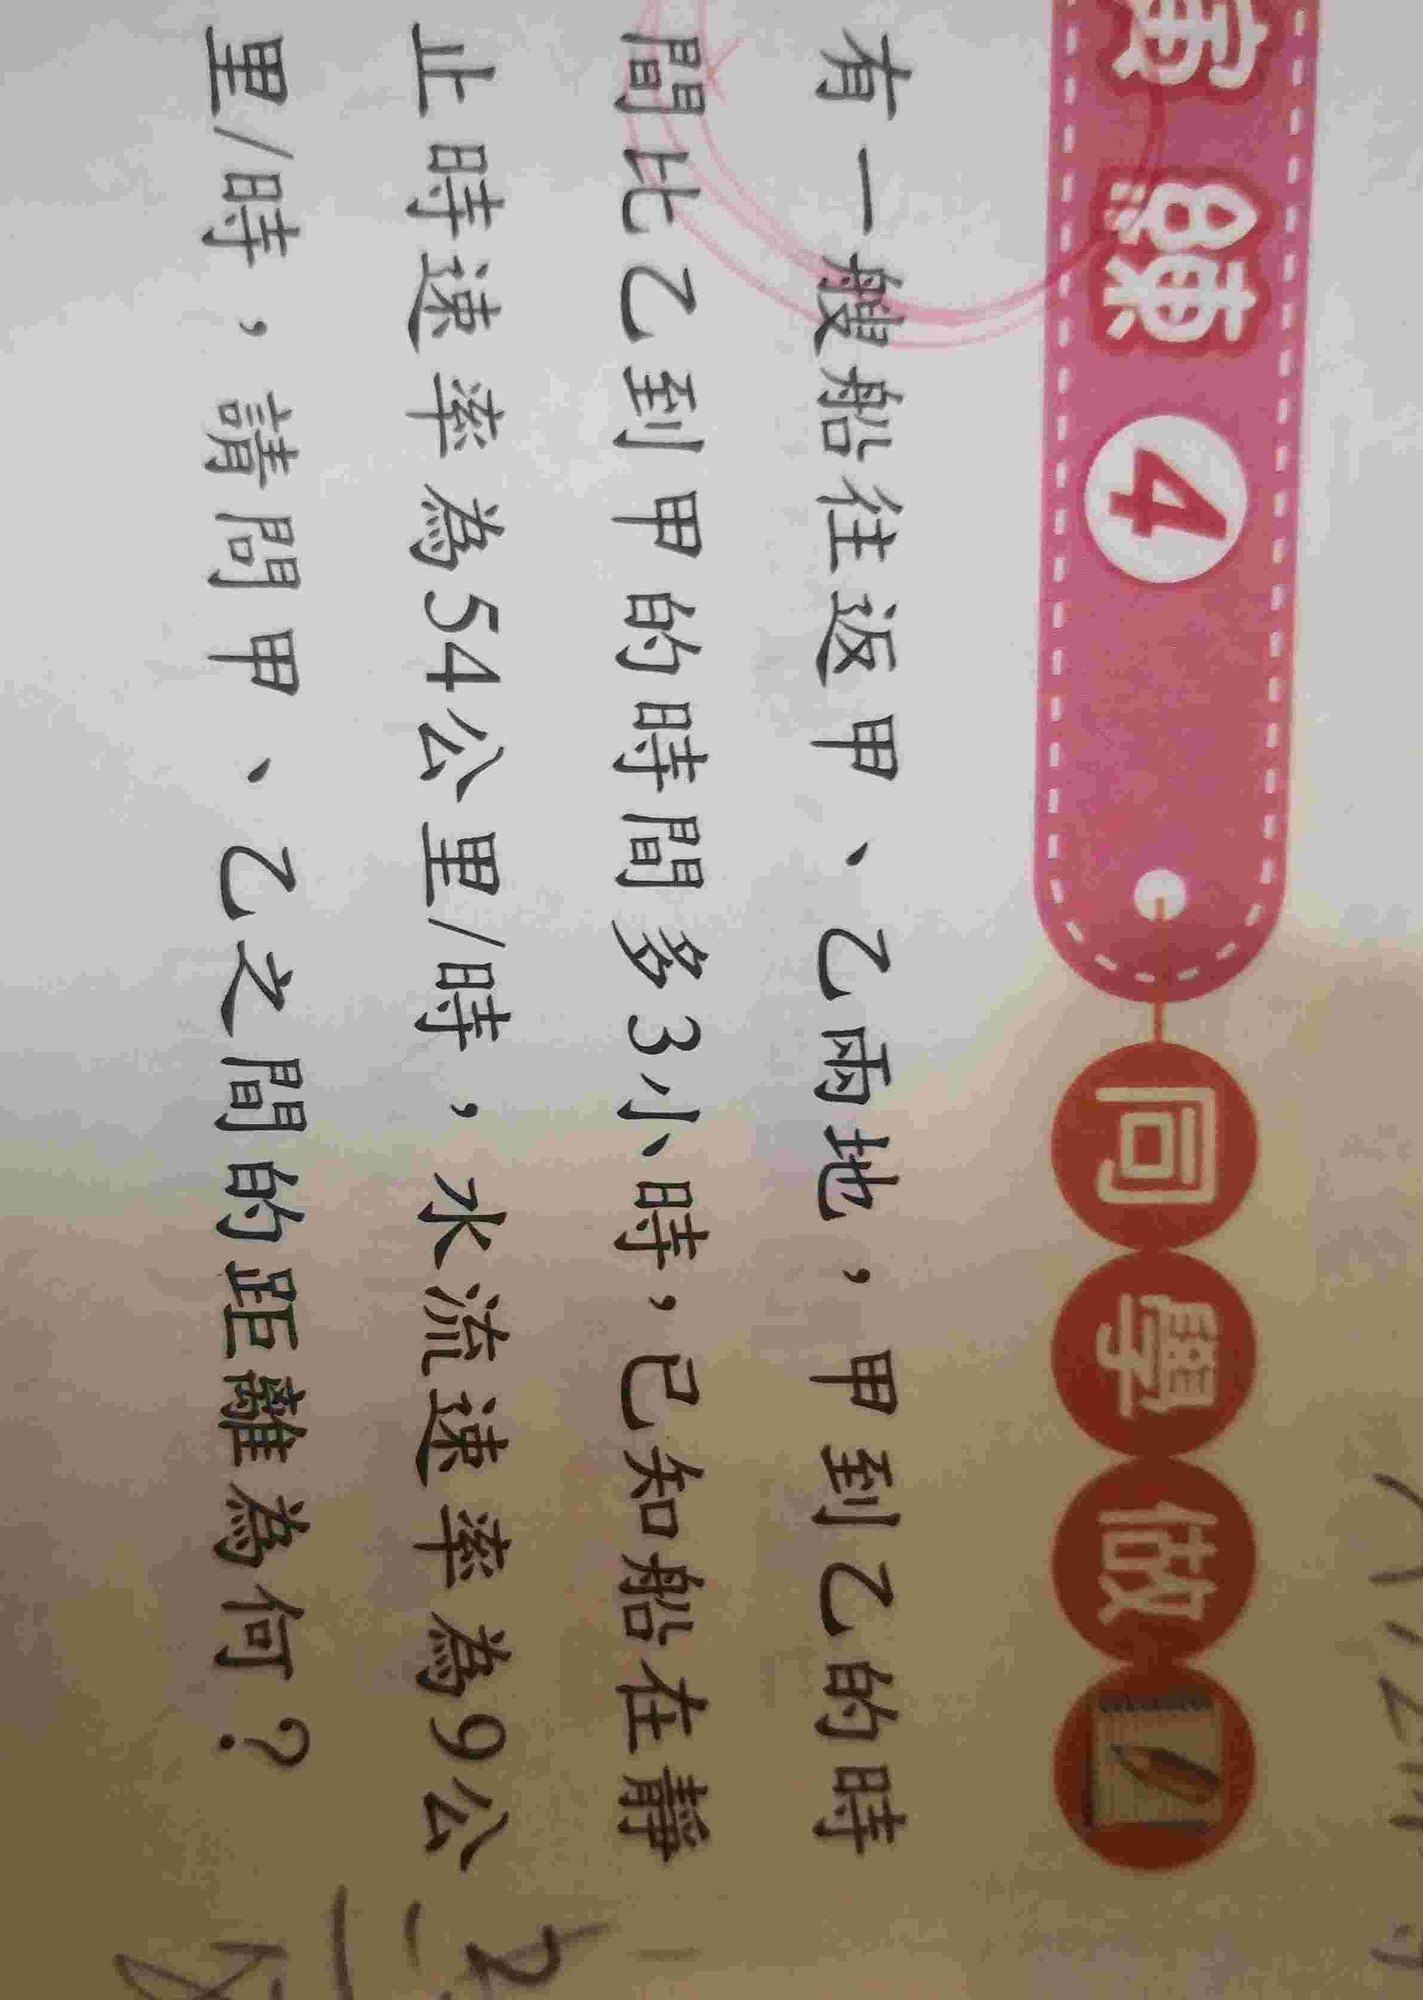 演練 4 同學做
有一艘船往返甲、乙兩地，甲到乙的時
間比乙到甲的時間多3小時，已知船在靜
止時速率為54公里/時，水流速率為9公
里/時，請問甲、乙之間的距離為何？
2